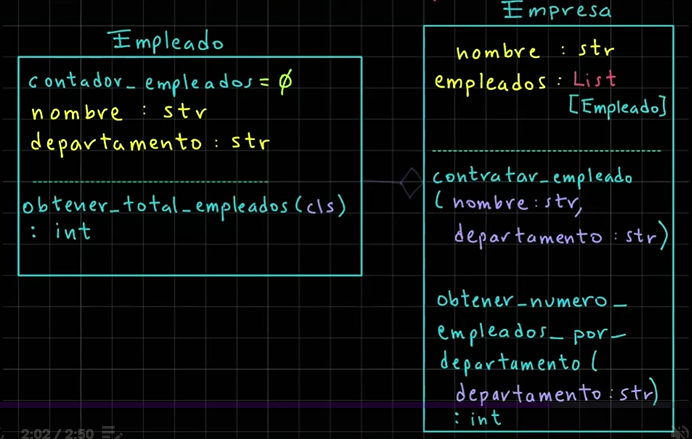 Empleado
contador_empleados = 0
nombre : str
departamento : str
obtener_total_empleados(cls)
: int
Empresa
nombre : str
empleados : List
[Empleado]
contratar_empleado
(nombre : str,
departamento : str)
obtener_numero_
empleados_por_
departamento(
departamento : str)
: int
2:02 / 2:50